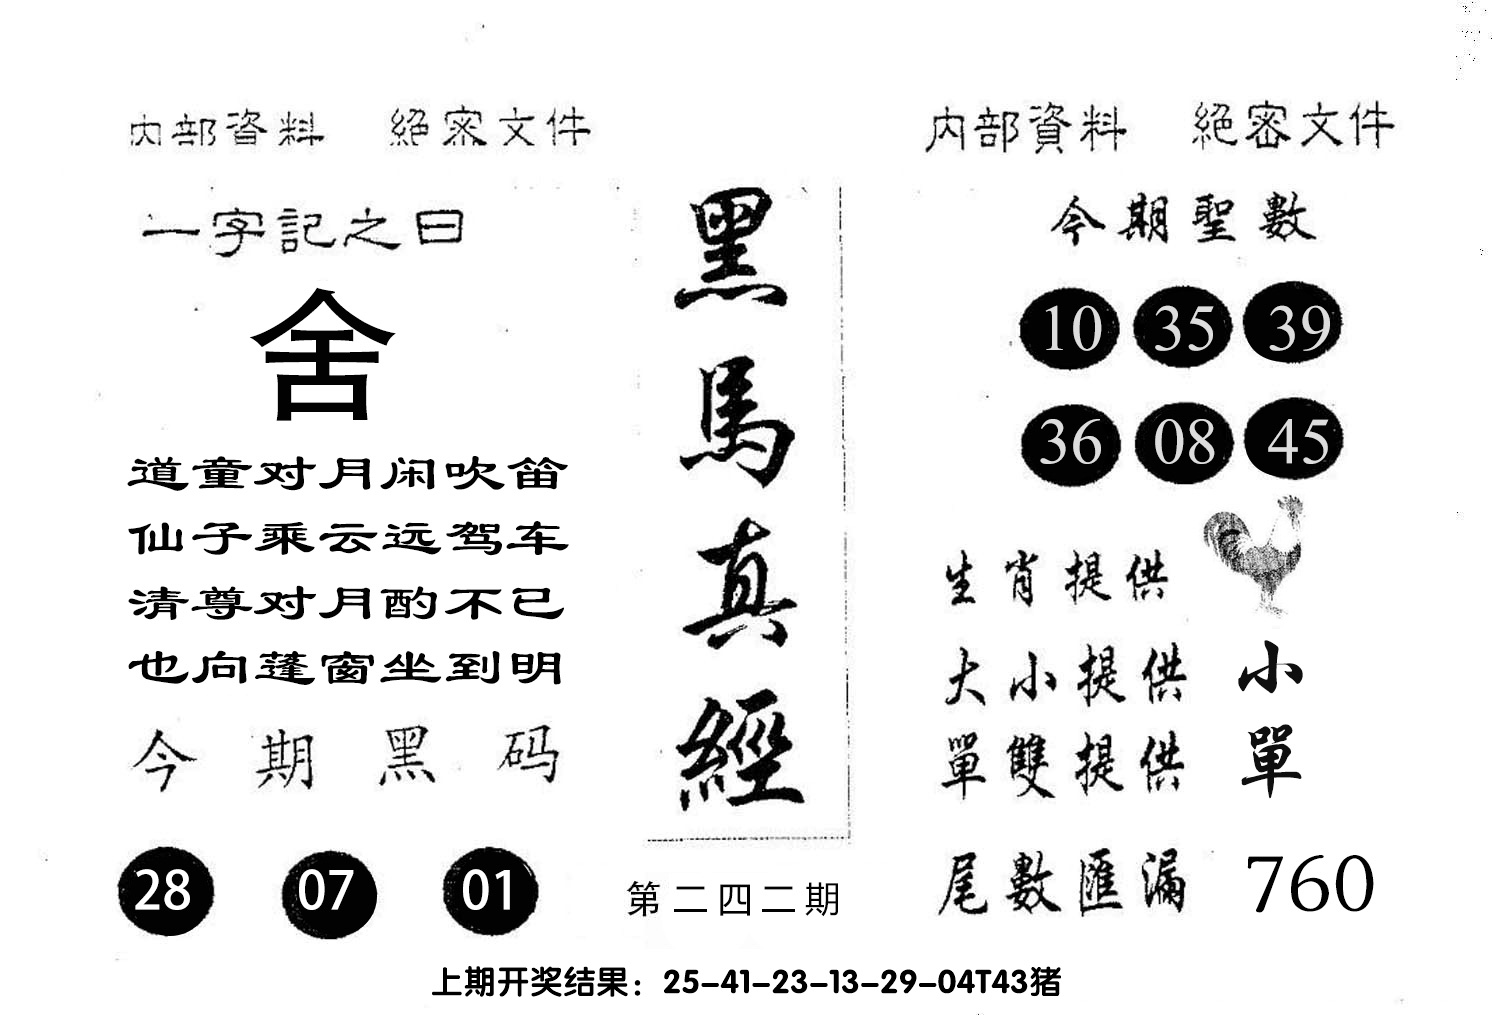 内部資料 絕密文件
一字記之曰
舍
道童对月闲吹笛
仙子乘云远驾车
清尊对月酌不已
也向蓬窗坐到明
今期黑码
28 07 01
黑馬真經
第二四二期
内部資料 絕密文件
今期聖數
10 35 39
36 08 45
生肖提供
大小提供 小
單雙提供 單
尾數匯漏 760
上期开奖结果：25-41-23-13-29-04T43猪